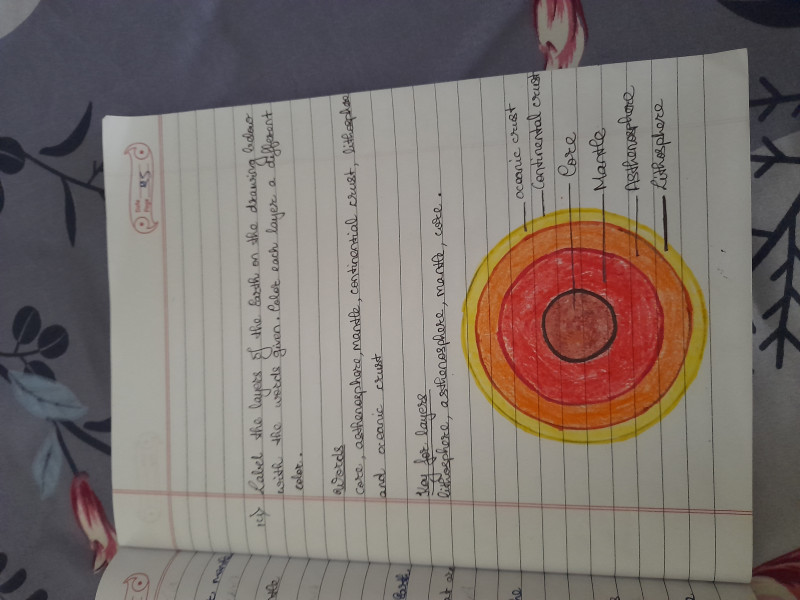 Date
Page 45
14) Label the layers of the Earth on the drawing below
with the words given. Color each layer a different
color.
Words
core, asthenosphere, mantle, continential crust, lithosphe
and oceanic crust
Key for layers
lithosphere, asthenosphere, mantle, core.
oceanic crust
Continental crust
Core
Mantle
Asthenosphere
Lithosphere